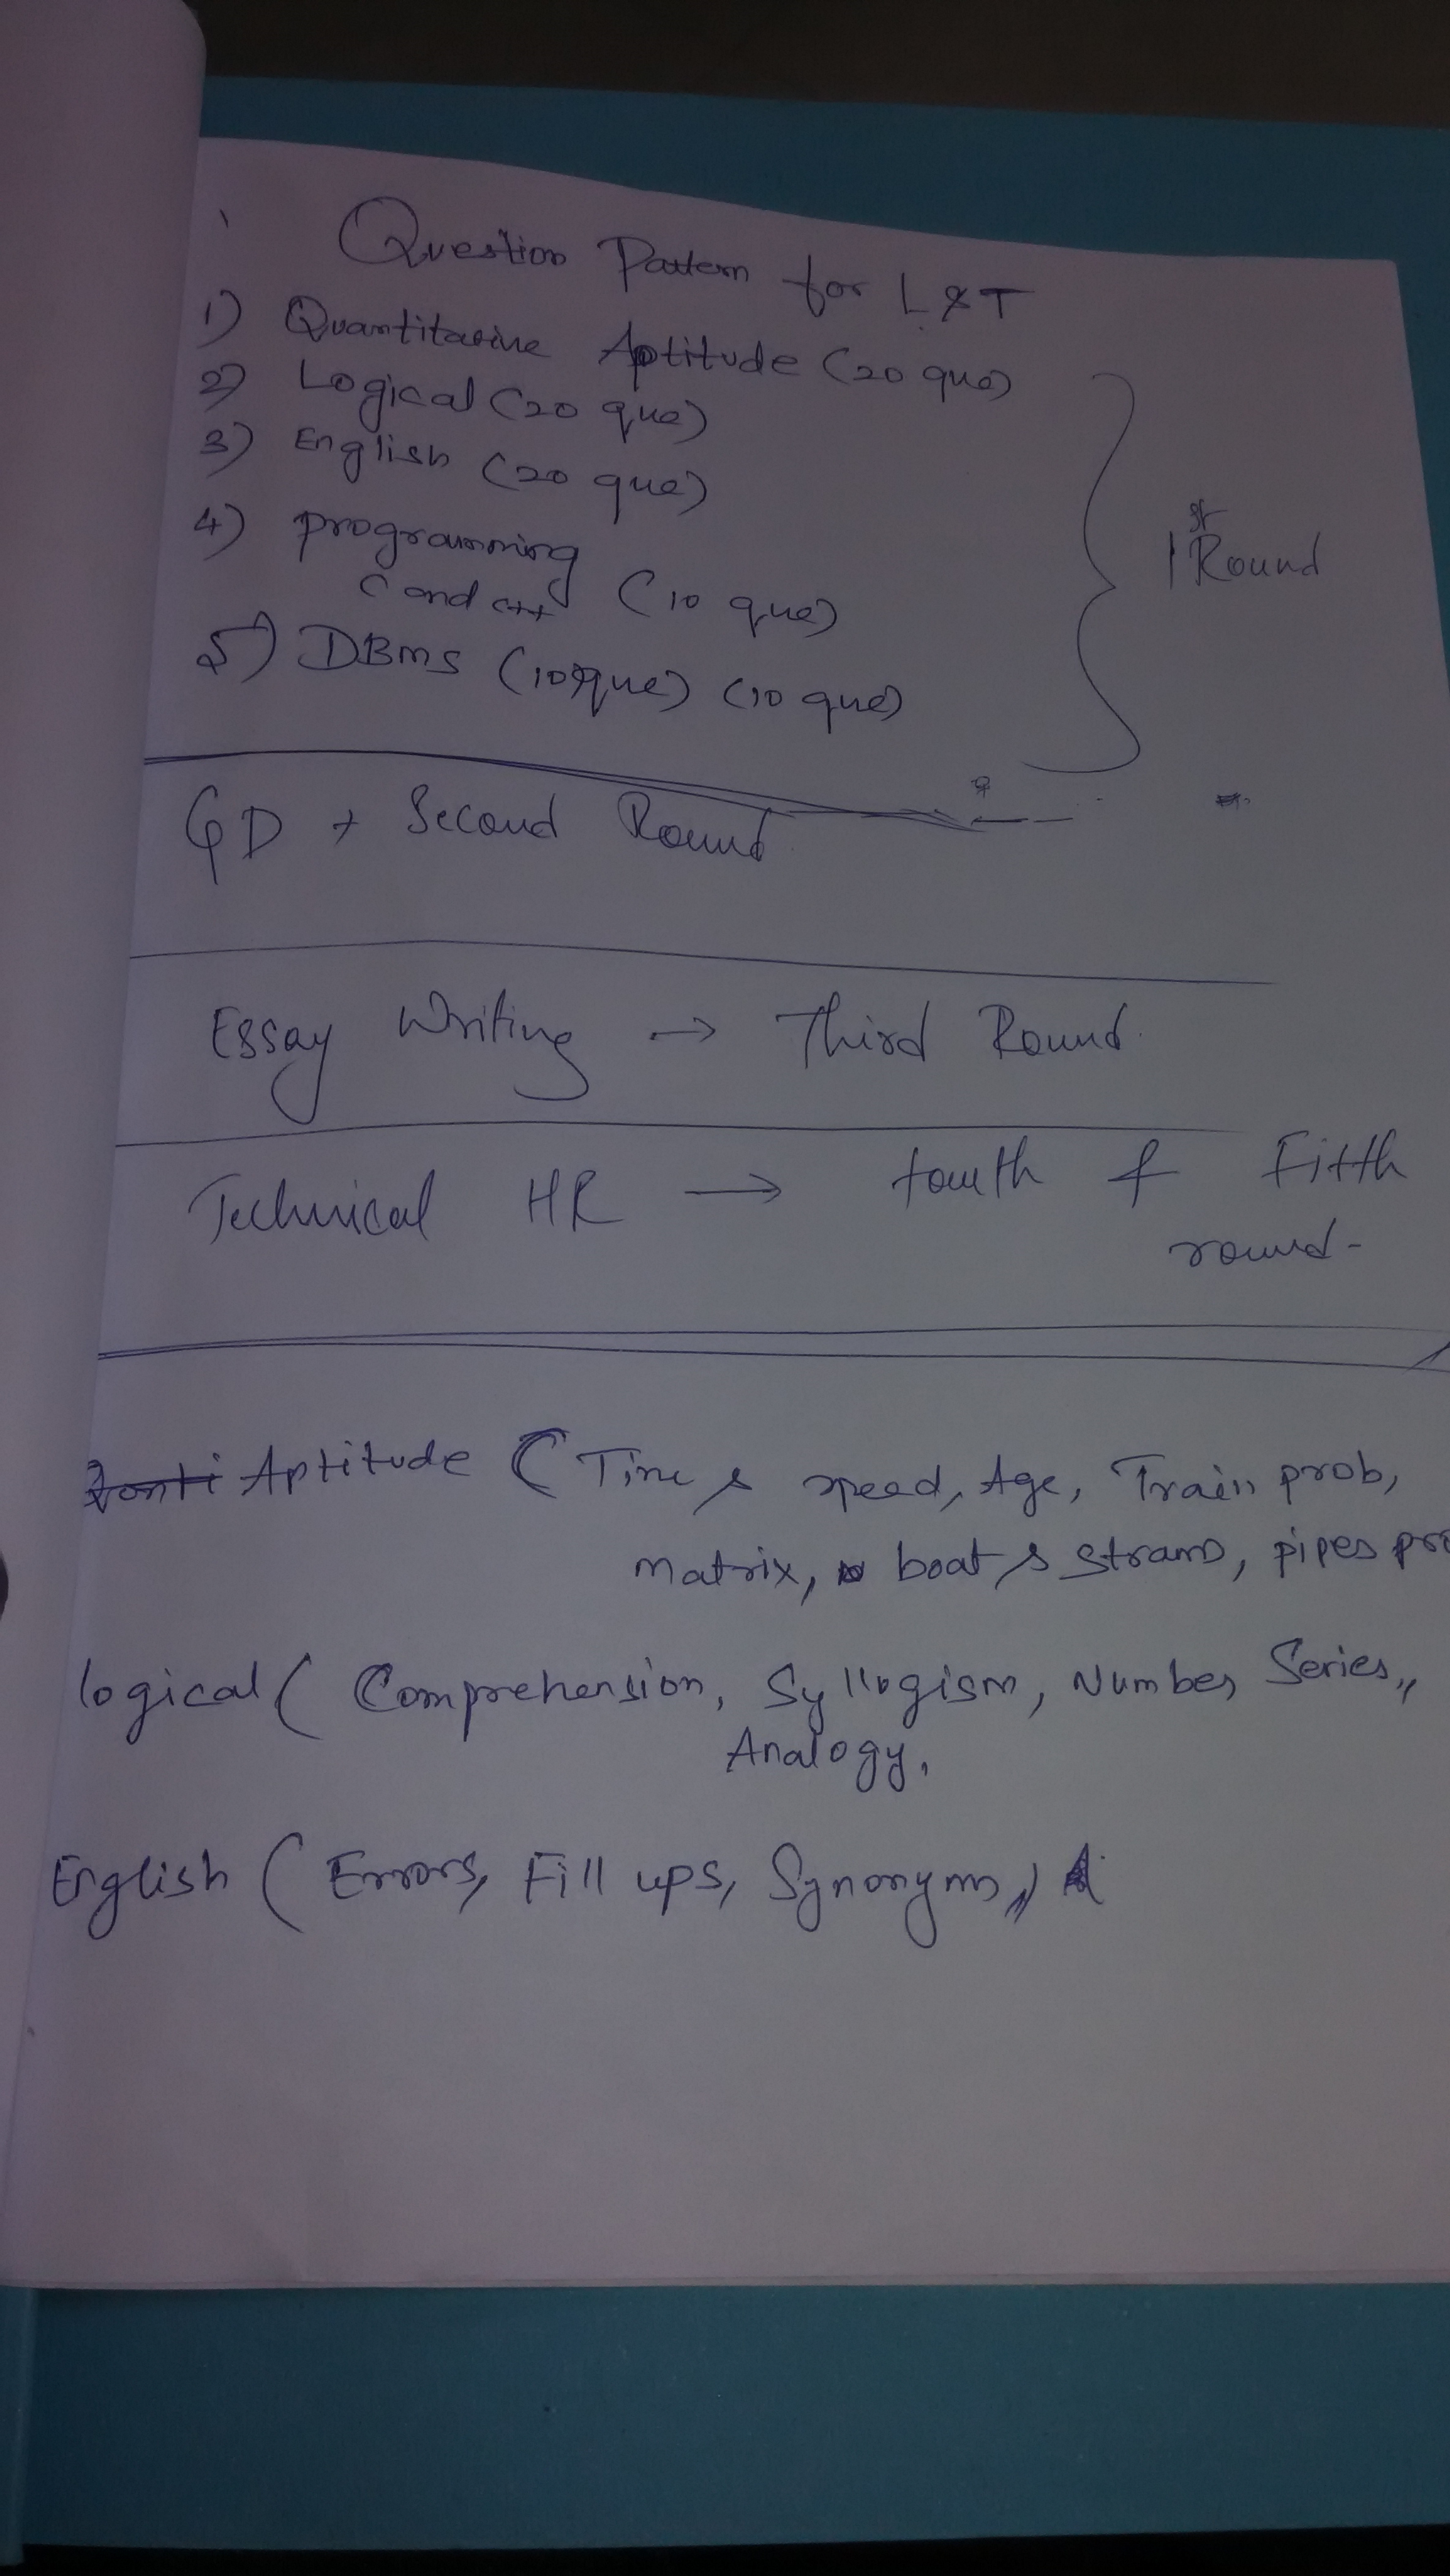 Question Pattern for L&T
1) Quantitative Aptitude (20 que)
2) Logical (20 que)
3) English (20 que)
4) programming
C and C++ (10 que)
5) DBMS (10 que) (10 que)
1st Round
GD + Second Round
Essay Writing → Third Round.
Technical HR → fourth & Fifth
round-
Aptitude (Time & speed, Age, Train prob,
matrix, boat & strams, pipes pro
logical ( Comprehension, Syllogism, Number Series,,
Analogy,
English ( Errors, Fill ups, Synonyms,)